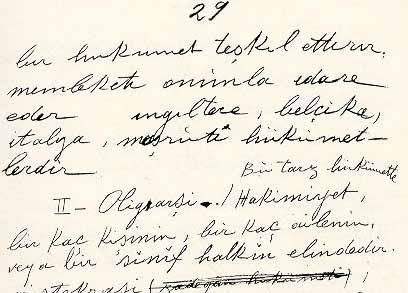 29
bir hükumet teşkil ettirir.
memleketi onunla idare
eder ingiltere, belçika,
italya, meşruti hükümet-
lerdir
Bu tarz hükümette
II - Oligarşi - / Hakimiyet,
bir kaç kişinin, bir kaç ailenin,
veya bir sinif halkin elindedir.